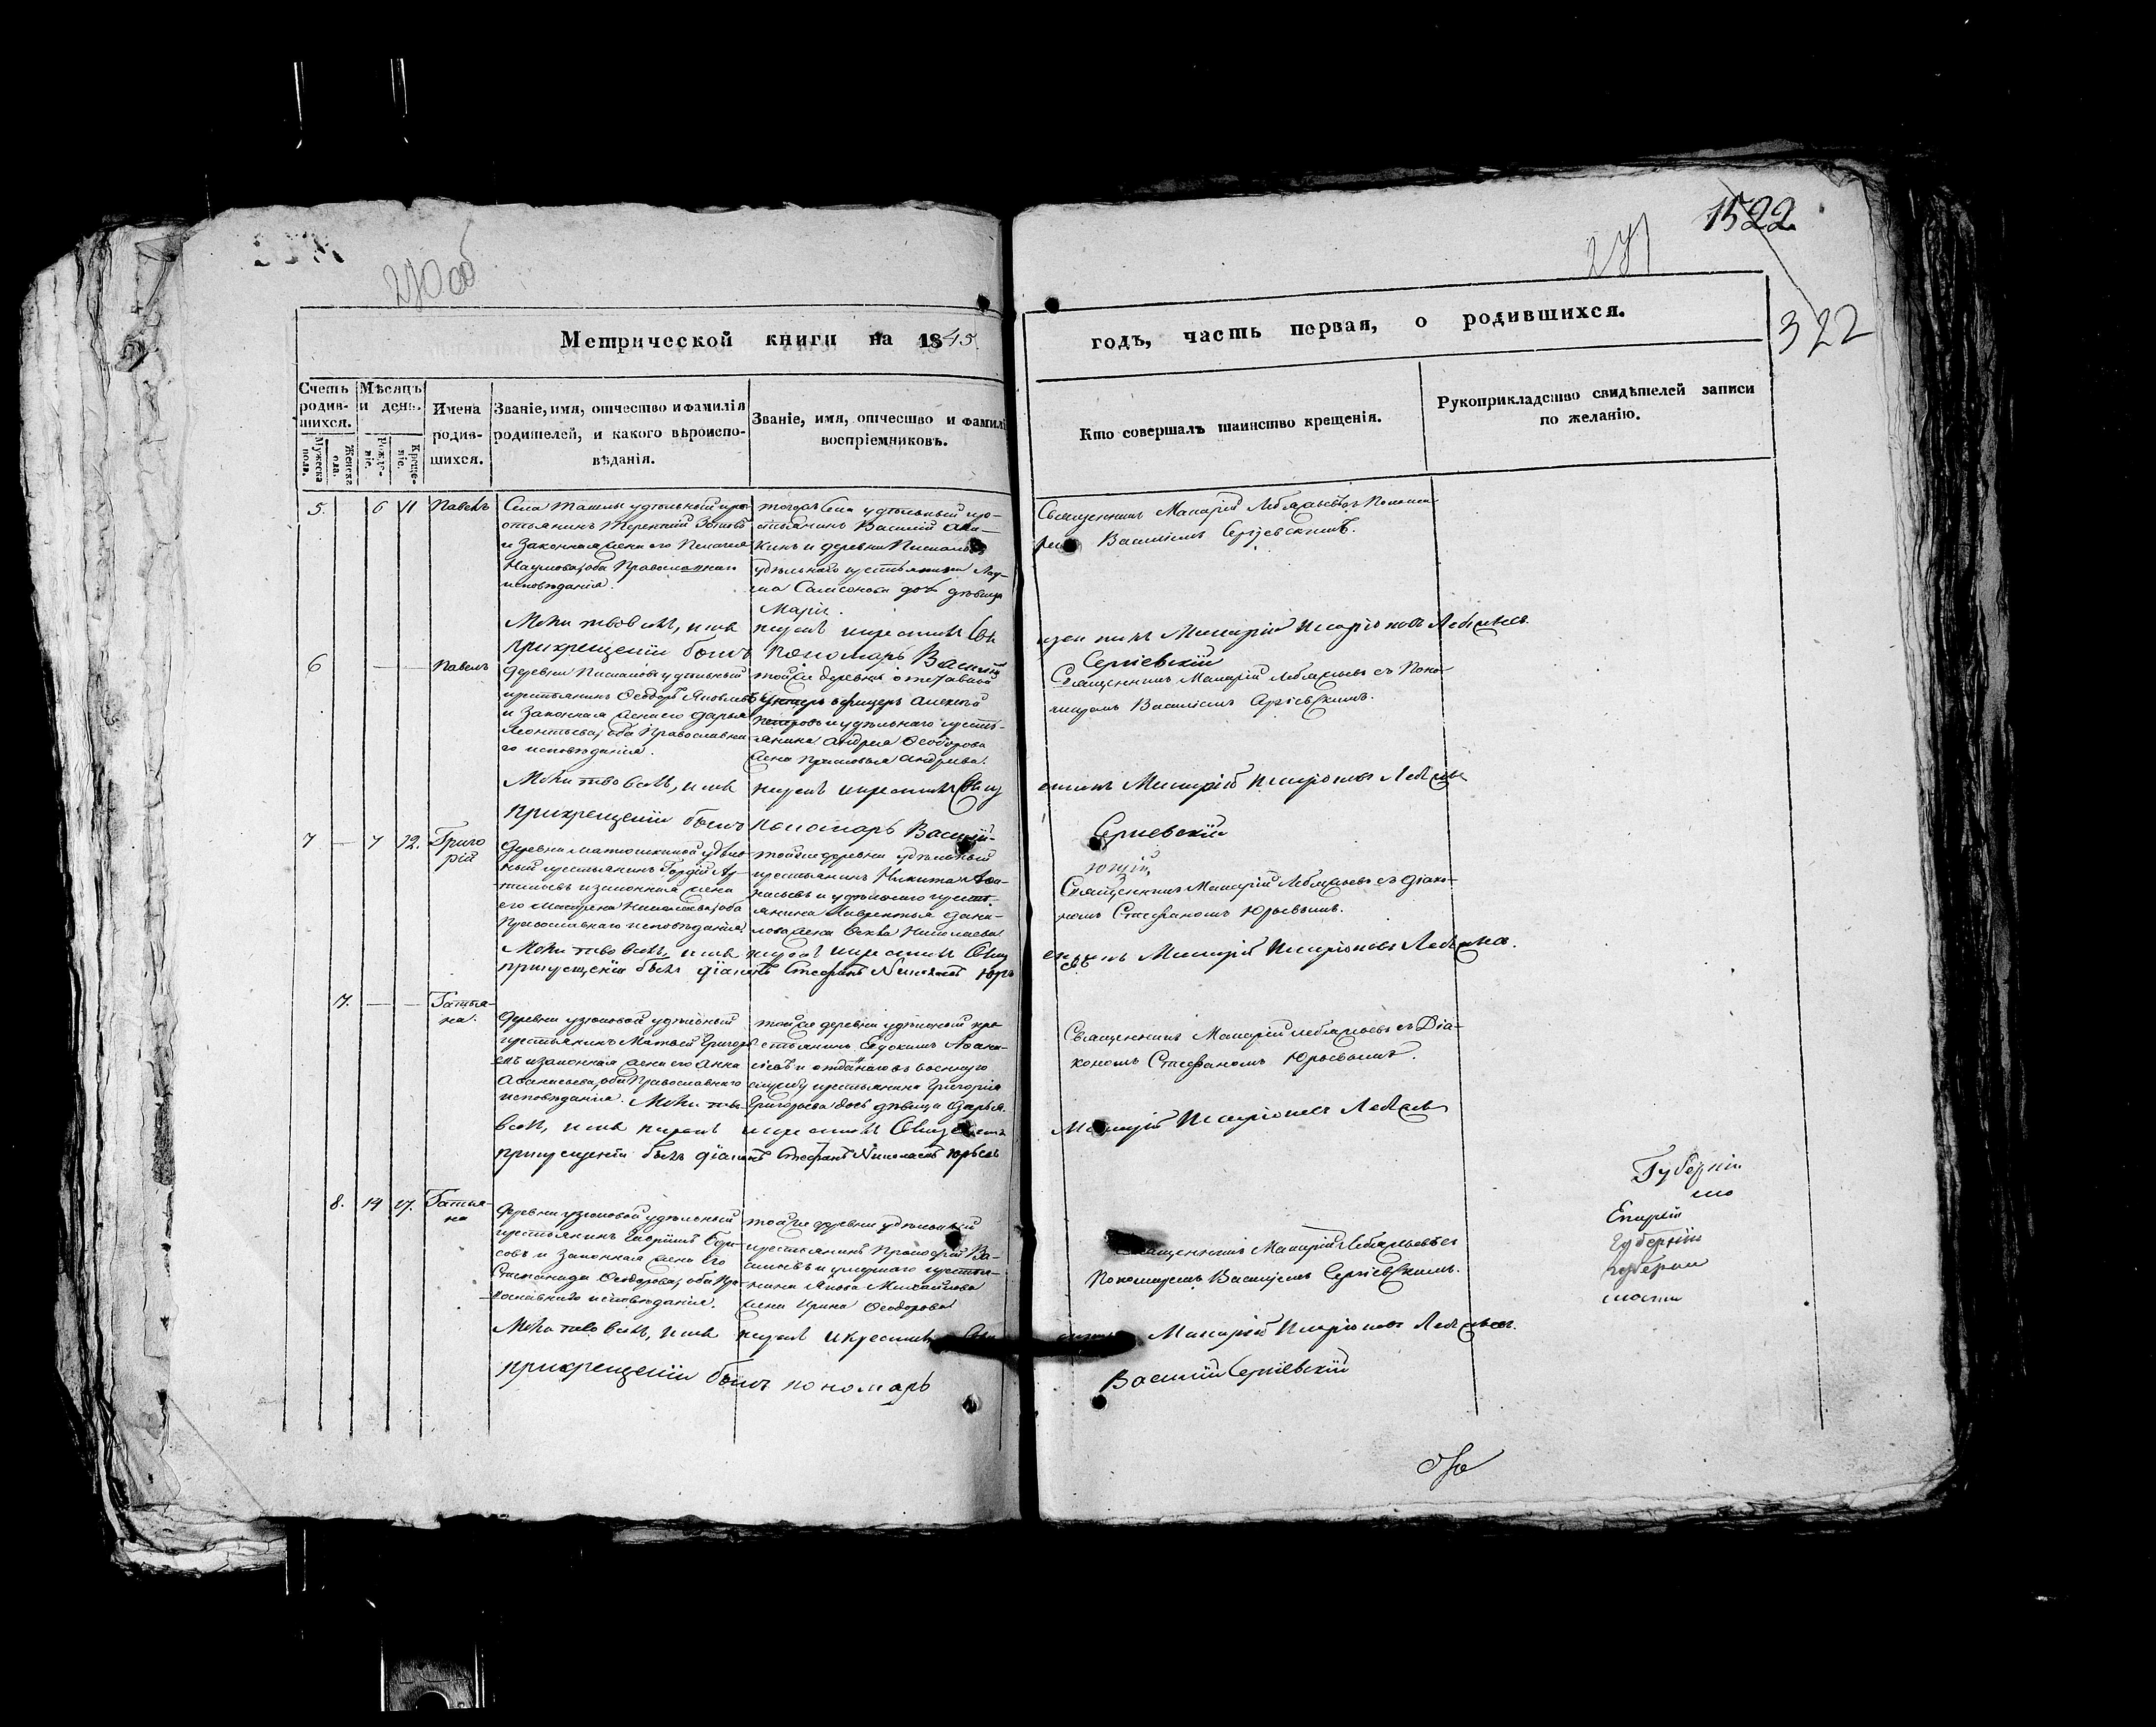 1522
270 об
271
322
Метрической книги на 1845
годъ, часть первая, о родившихся.
Счетъ родив-шихся.
Мужеска полв.
Женска пола.
Мѣсяцъ и день.
Рожде-нія.
Креще-нія.
Имена родив-шихся.
Званіе, имя, отчество и фамилія родителей, и какого вѣроиспо-вѣданія.
Званіе, имя, отчество и фамилія воспріемниковъ.
Кто совершалъ таинство крещенія.
Рукоприкладство свидѣтелей записи по желанію.
5. 6 11 Павелъ
Села Ташлы удѣльный кре-
стьянинъ Терентій
и законная жена его Пелагея
Наумова, оба Православнаго
исповѣданія.
тогожъ села удѣльный кре-
стьянинъ Василій
кинъ и деревни
удѣльнаго крестьянина
Самсонова дочь дѣвица
Марія.
Священникъ Макарій Лебяжьевъ съ Понома-
ремъ Василіемъ Сергіевскимъ.
Молитвовалъ, имя нарекъ и крестилъ Свя
щенникъ Макарій Иларіоновъ Лебяжьев
при крещеніи былъ пономарь Василій
Сергіевскій
6 — — Павелъ
деревни удѣльный
крестьянинъ Ѳеодоръ Яковлевъ
и законная жена его Дарья
Леонтьева, оба Православна
го исповѣданія.
той же деревни отставной
унтеръ офицеръ Алексѣй
Петровъ и удѣльнаго кресть-
янина Андрея Ѳеодорова
жена Прасковья Андреева.
Священникъ Макарій Лебяжьевъ съ Поно-
маремъ Василіемъ Сергіевскимъ.
Молитвовалъ, имя нарекъ и крестилъ Свящ
енникъ Макарій Иларіоновъ Лебяжьев
при крещеніи былъ пономарь Василій
Сергіевскій
7 — 7 12. Григо
рій
деревни Матюшкиной удѣль
ный крестьянинъ Гордѣй Ар-
и законная жена
его Матрена Николаева, оба
Православнаго исповѣданія.
той же деревни удѣльный
крестьянинъ Никита Аѳа-
насьевъ и удѣльнаго крест-
янина Лаврентья Дани-
лова жена Ѳекла Николаева
Священникъ Макарій Лебяжьевъ съ Діако-
номъ Стефаномъ Юрьевымъ.
Молитвовалъ, имя нарекъ и крестилъ Свящ
енникъ Макарій Иларіоновъ Лебяжьев.
при крещеніи былъ діаконъ Стефанъ Николаевъ Юрь
евъ
7. — — Татья-
на.
деревни Узюковой удѣльный
крестьянинъ Матвей Григорь
евъ и законная жена его Анна
Аѳанасьева, оба Православнаго
исповѣданія.
той же деревни удѣльный кре
стьянинъ Евдокимъ Аѳана-
сьевъ и отданаго въ военную
службу крестьянина Григорія
Григорьева дочь дѣвица Дарья.
Священникъ Макарій Лебяжьевъ съ Діа-
кономъ Стефаномъ Юрьевымъ.
Молитво
валъ, имя нарекъ и крестилъ Священникъ
Макарій Иларіоновъ Лебяжьев
при крещеніи былъ діаконъ Стефанъ Николаевъ Юрьевъ
8. 14 17. Татья-
на
деревни Узюковой удѣльный
крестьянинъ Гавріилъ Бори
совъ и законная жена его
Степанида Ѳеодорова, оба Пра
вославнаго исповѣданія.
той же деревни удѣльный
крестьянинъ Прокофій Ва-
сильевъ и удѣльнаго крестья-
нина Якова Михайлова
жена Ирина Ѳеодорова
Священникъ Макарій Лебяжьевъ съ
Пономаремъ Василіемъ Сергіевскимъ.
Молитвовалъ, имя нарекъ и крестилъ Свя
щенникъ Макарій Иларіоновъ Лебяжьев.
при крещеніи былъ пономарь
Василій Сергіевскій
Губерніи
Епархіи
Губерніи